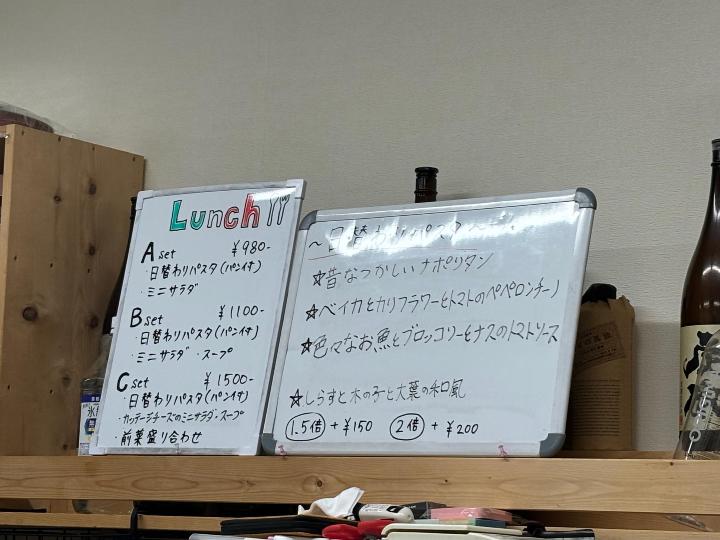 Lunch
A set ￥980-
・日替わりパスタ(パン付)
・ミニサラダ
B set ￥1100-
・日替わりパスタ(パン付)
・ミニサラダ・スープ
C set ￥1500-
・日替わりパスタ(パン付)
・カッテージチーズのミニサラダ・スープ
・前菜盛り合わせ
～日替わりパスタ
☆昔なつかしいナポリタン
☆ベイカとカリフラワーとトマトのペペロンチーノ
☆色々なお魚とブロッコリーとナスのトマトソース
☆しらすと木の子と大葉の和風
1.5倍 +￥150 2倍 +￥200